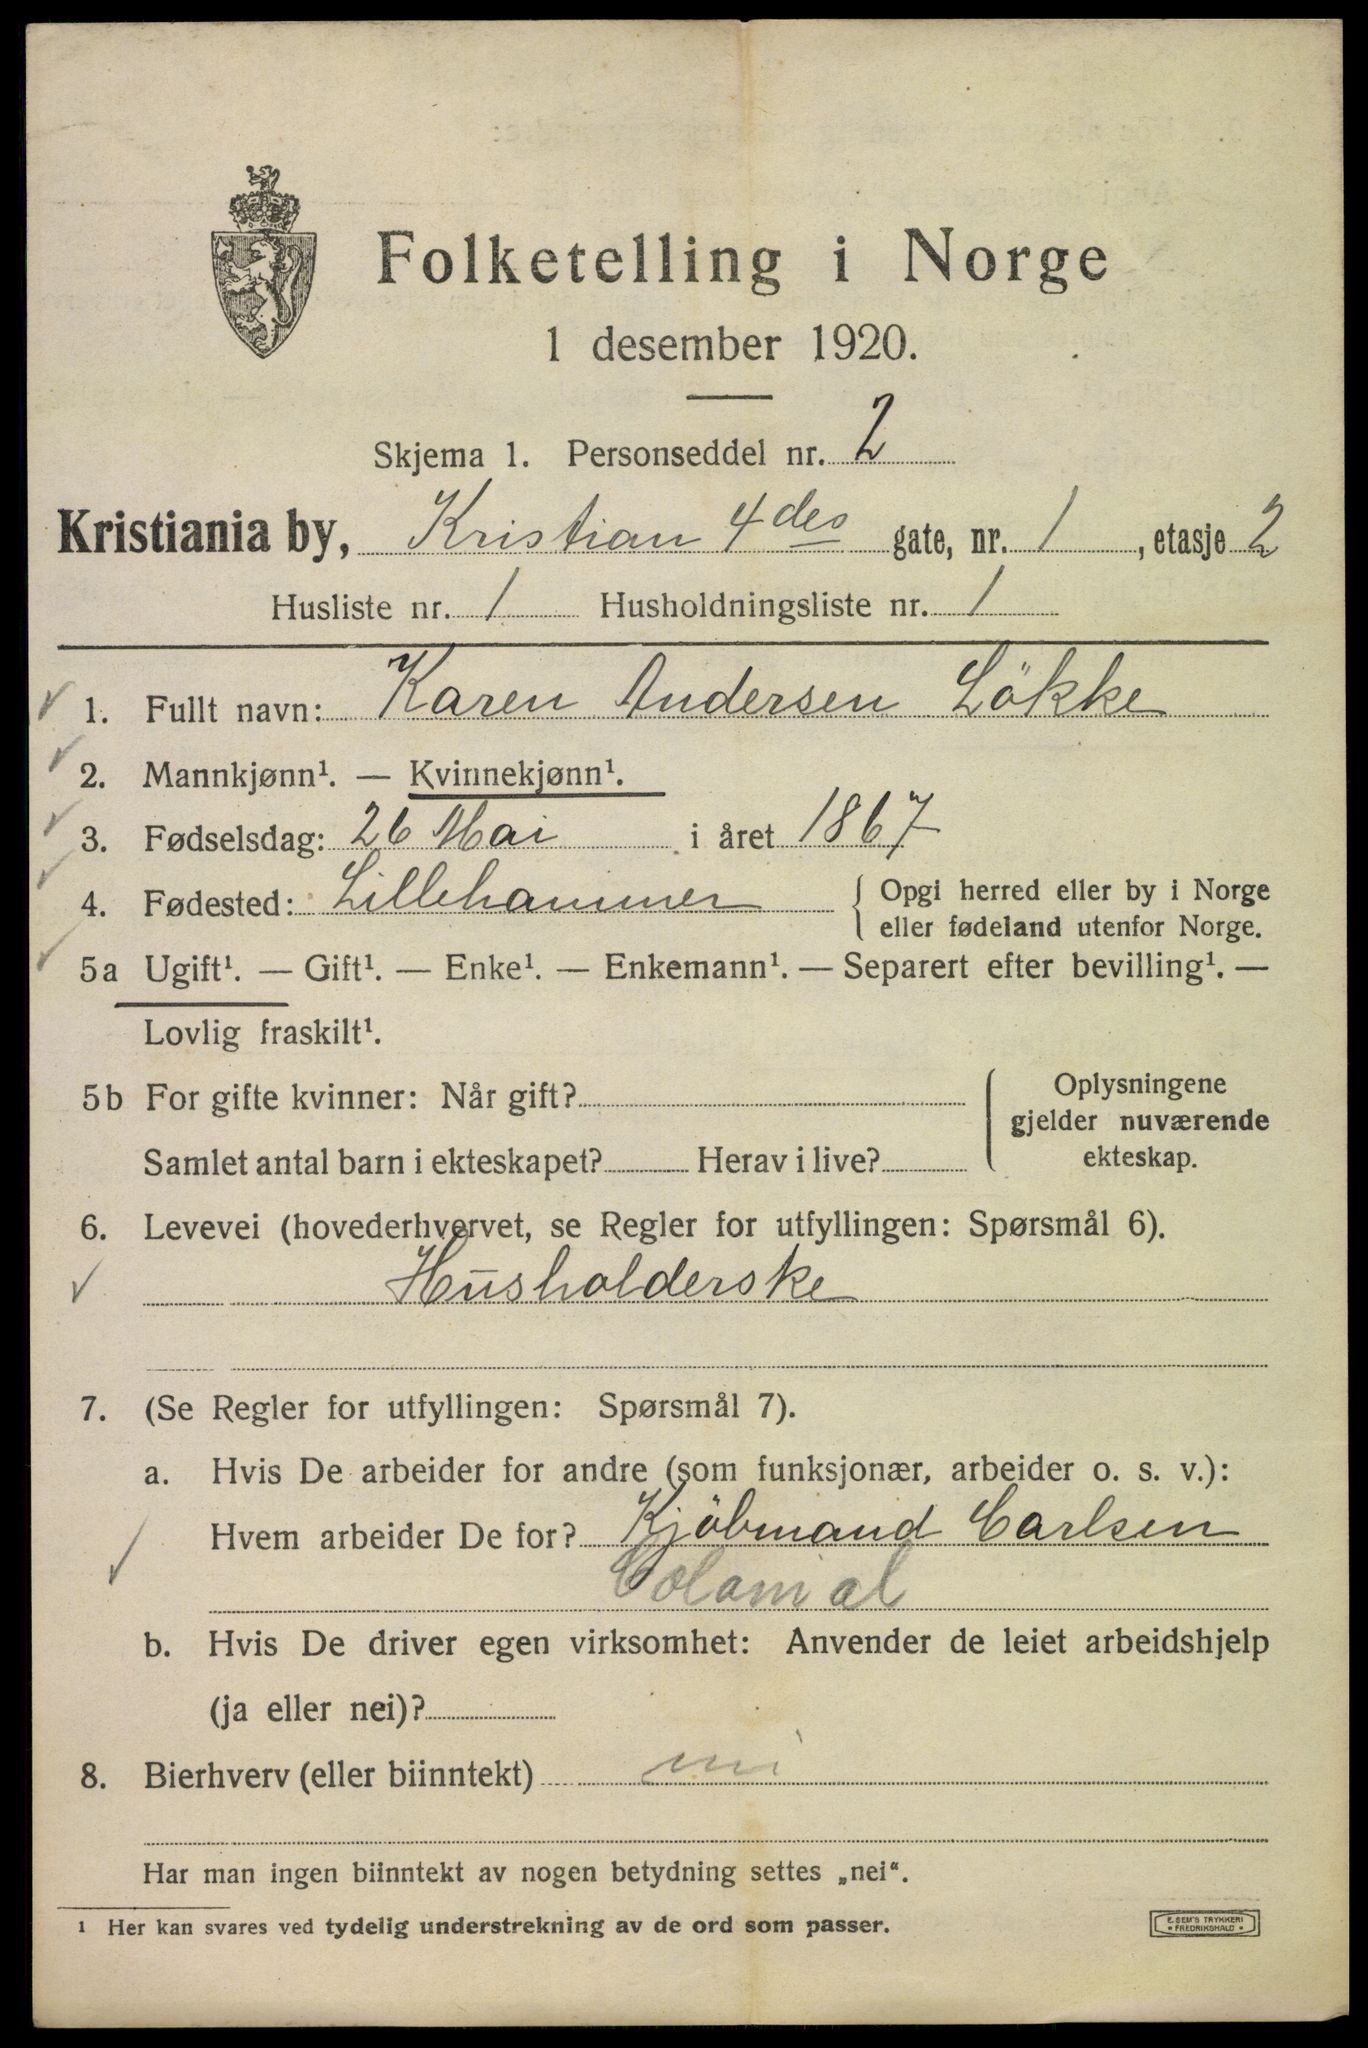 Folketelling i Norge
1 desember 1920.
Skjema 1. Personseddel nr. 2
Kristiania by, Kristian 4des gate, nr. 1, etasje 2
Husliste nr. 1 Husholdningsliste nr. 1
1. Fullt navn: Karen Andersen Lökke
2. Mannkjønn¹. — Kvinnekjønn¹.
3. Fødselsdag: 26 Mai i året 1867
4. Fødested: Lillehammer { Opgi herred eller by i Norge
eller fødeland utenfor Norge.
5a Ugift¹. — Gift¹. — Enke¹. — Enkemann¹. — Separert efter bevilling¹. —
Lovlig fraskilt¹.
5b For gifte kvinner: Når gift?
Samlet antal barn i ekteskapet? Herav i live?
Oplysningene
gjelder nuværende
ekteskap.
6. Levevei (hovederhvervet, se Regler for utfyllingen: Spørsmål 6).
Husholderske
7. (Se Regler for utfyllingen: Spørsmål 7).
a. Hvis De arbeider for andre (som funksjonær, arbeider o. s. v.):
Hvem arbeider De for? Kjöbmand Carlsen
Colonial
b. Hvis De driver egen virksomhet: Anvender de leiet arbeidshjelp
(ja eller nei)?
8. Bierhverv (eller biinntekt) nei
Har man ingen biinntekt av nogen betydning settes „nei“.
¹ Her kan svares ved tydelig understrekning av de ord som passer.
E. SEM'S TRYKKERI
• FREDRIKSHALD •